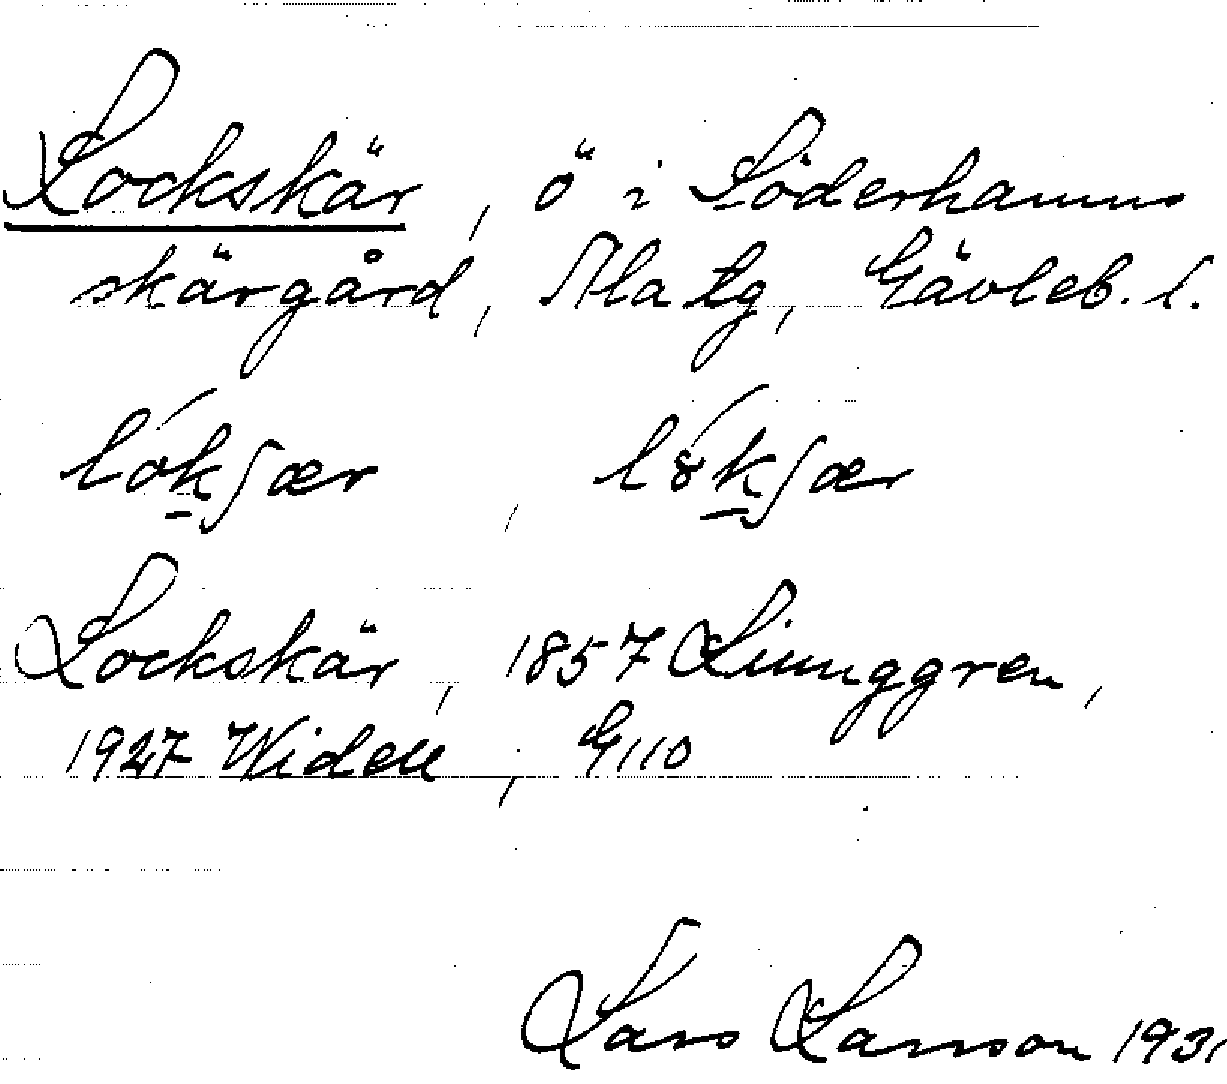 Lockskär, ö i Söderhamns
skärgård, Ala tg, Gävleb. l.
lókʃær, lýkʃær
Lockskär, 1857 Ljunggren,
1927 Widell, G110
Lars Larsson 1931